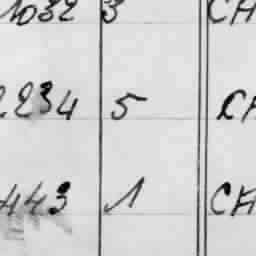 1032 3 CH
2234 5 CH
443 1 CH